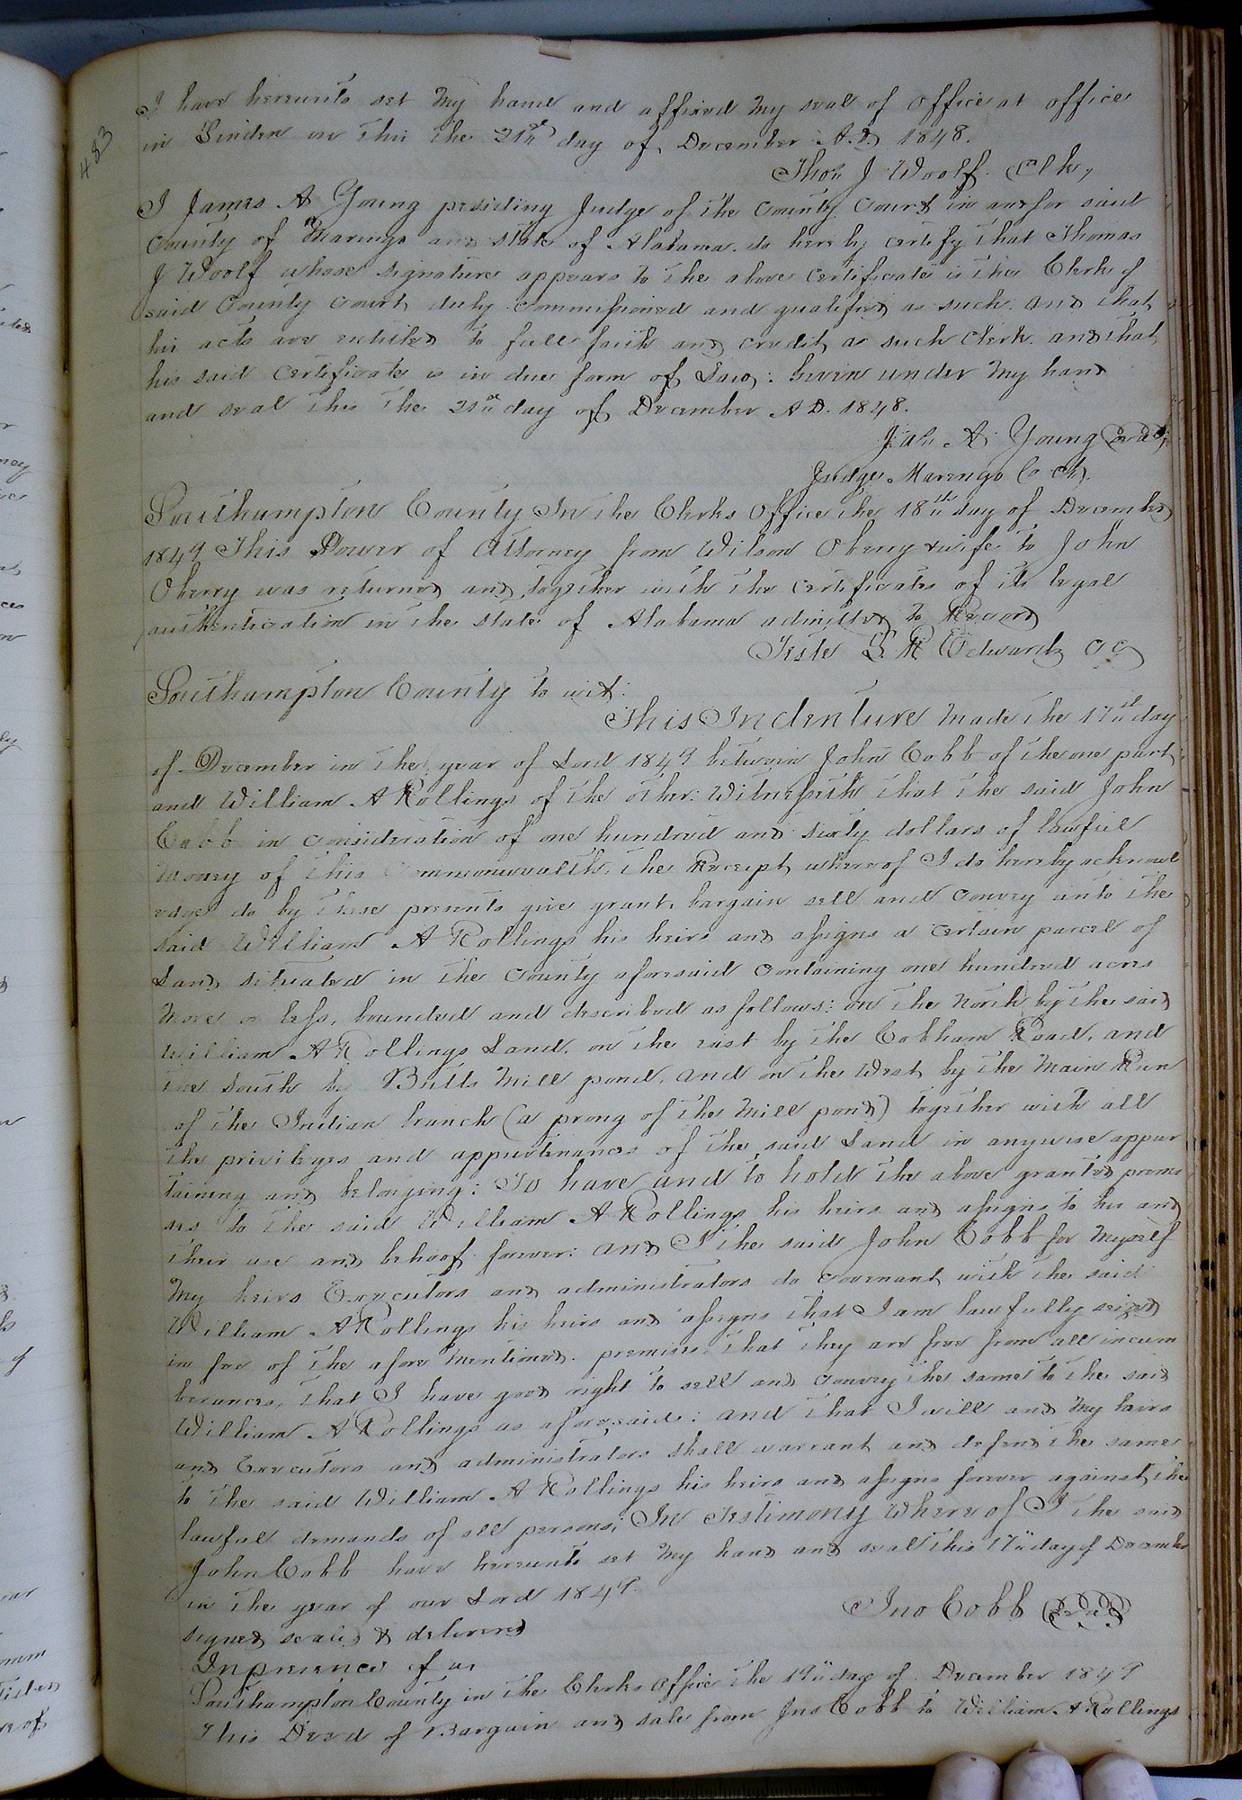 483
I have hereunto set my hand and affixed my seal of office at office
in Linden on this the 21st day of December A.D. 1848.
Thos J Woolf. Clk,
I James A Young presiding Judge of the County Court in and for said
County of Marengo and State of Alabama do hereby certify that Thomas
J Woolf whose signature appears to the above certificate is the Clerk of
said County Court, duly commissioned and qualified as such. and that
his acts are entitled to full faith and credit, as such Clerk. and that
his said certificate is in due form of Law: Given under my hand
and seal this the 21st day of December A D. 1848.
Jas. A. Young Seal
Judge Marengo Co Ct.
Southampton County In the Clerks Office the 18th day of December
1849 This Power of Attorney from Wilson Oberry & wife to John
Oberry was returned and together with the certificates of its legal
authentication in the state of Alabama admitted to Record
Teste L. R Edwards CC
Southampton County to wit:
This Indenture made the 17th day
of December in the year of Lord 1849 between John Cobb of the one part
and William A Rollings of the other: Witnesseth that the said John
Cobb in consideration of one hundred and sixty dollars of lawful
money of this Commonwealth, the Receipt whereof I do hereby acknowl
edge do by these presents give grant, bargain sell and convey unto the
said William A Rollings his heirs and assigns a certain parcel of
Land situated in the County aforesaid containing one hundred acres
more or less, bounded and described as follows: on the North by the said
William A Rollings Land, on the east by the Cobham Road, and
the South by Butts Mill pond, and on the West by the Main Run
of the Indian branch (a prong of the Mill pond) together with all
the privileges and appurtenances of the said Land in anywise apper
taining and belonging: To have and to hold the above granted premi
ses to the said William A Rollings his heirs and assigns to his and
their use and behoof forever: and I the said John Cobb for myself
my heirs Executors and administrators do covenant with the said
William A Rollings his heirs and assigns that I am lawfully seized
in fee of the afore mentioned. premises that they are free from all incum
berances, that I have good right to sell and convey the same to the said
William A Rollings as aforesaid: and that I will and my heirs
and Executors and administrators shall warrant and defend the same
to the said William A Rollings his heirs and assigns forever against the
lawful demands of all persons: In Testimony whereof I the said
John Cobb have hereunto set my hand and seal this 17th day of December
in the year of our Lord 1849.
Jno Cobb Seal
signed sealed & delivered
In presence of us
Southampton County in the Clerks office the 17th day of December 1849
This Deed of Bargain and sale from Jno Cobb to William A Rollings